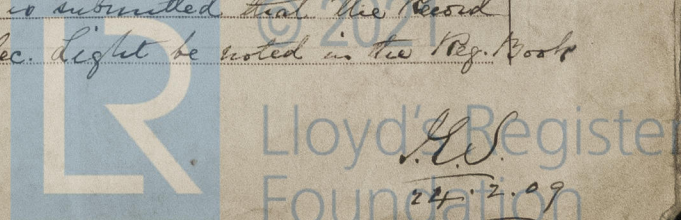 is submitted that the Record
ec. Light be noted in the Reg. Book
J.G.S.
24.2.09
© 2021
LR
Lloyd's Register
Foundation